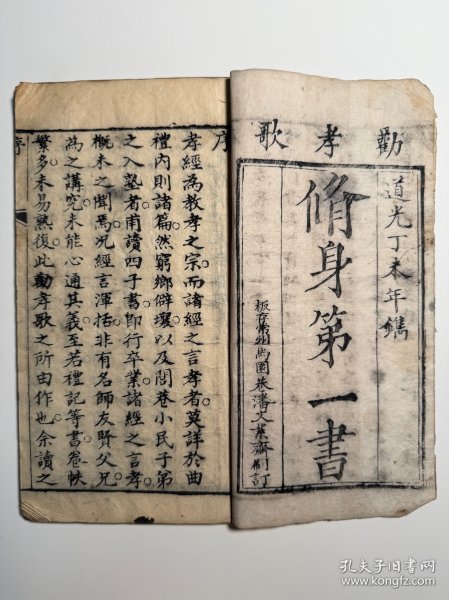 勸孝歌
道光丁未年鐫
脩身第一書
板存常州馬園巷潘文集齋刷訂
序
孝經為教孝之宗而諸經之言孝者莫詳於曲
禮內則諸篇然窮鄉僻壤以及閭巷小民子弟
之入塾者甫讀四子書即行卒業諸經之言孝
概未之聞焉况經言渾括非有名師友賢父兄
為之講究未能心通其義至若禮記等書卷帙
繁多未易熟復此勸孝歌之所由作也余讀之
序
孔夫子旧书网
www.kongfz.com